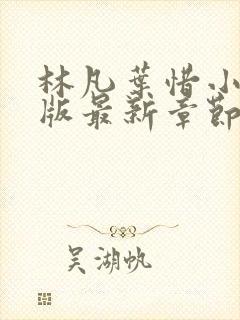 林凡葉惜小
版最新章節
吴湖帆